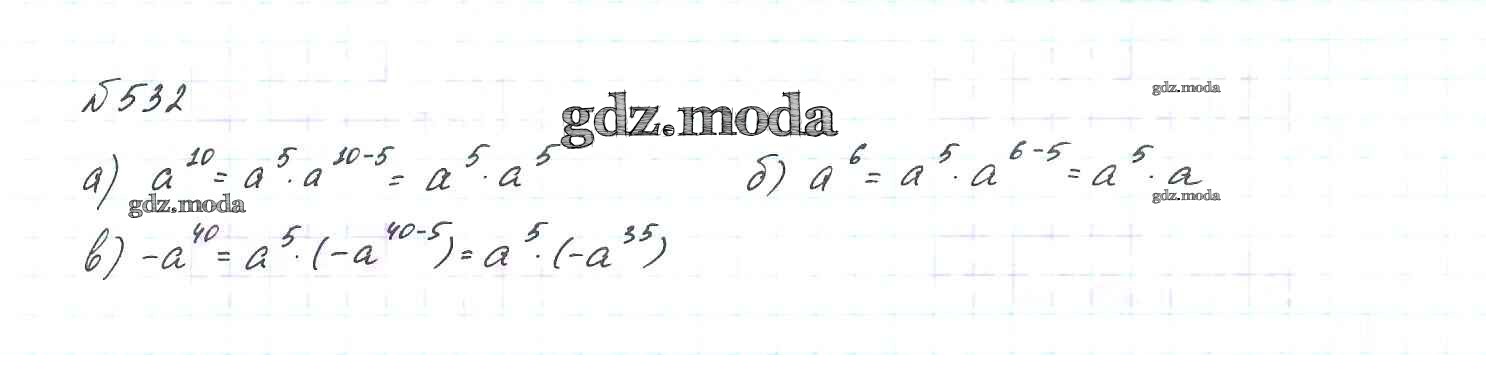 №532
gdz.moda
gdz.moda
а) a^10 = a^5 · a^10-5 = a^5 · a^5 б) a^6 = a^5 · a^6-5 = a^5 · a
gdz.moda gdz.moda
в) -a^40 = a^5 · (-a^40-5) = a^5 · (-a^35)